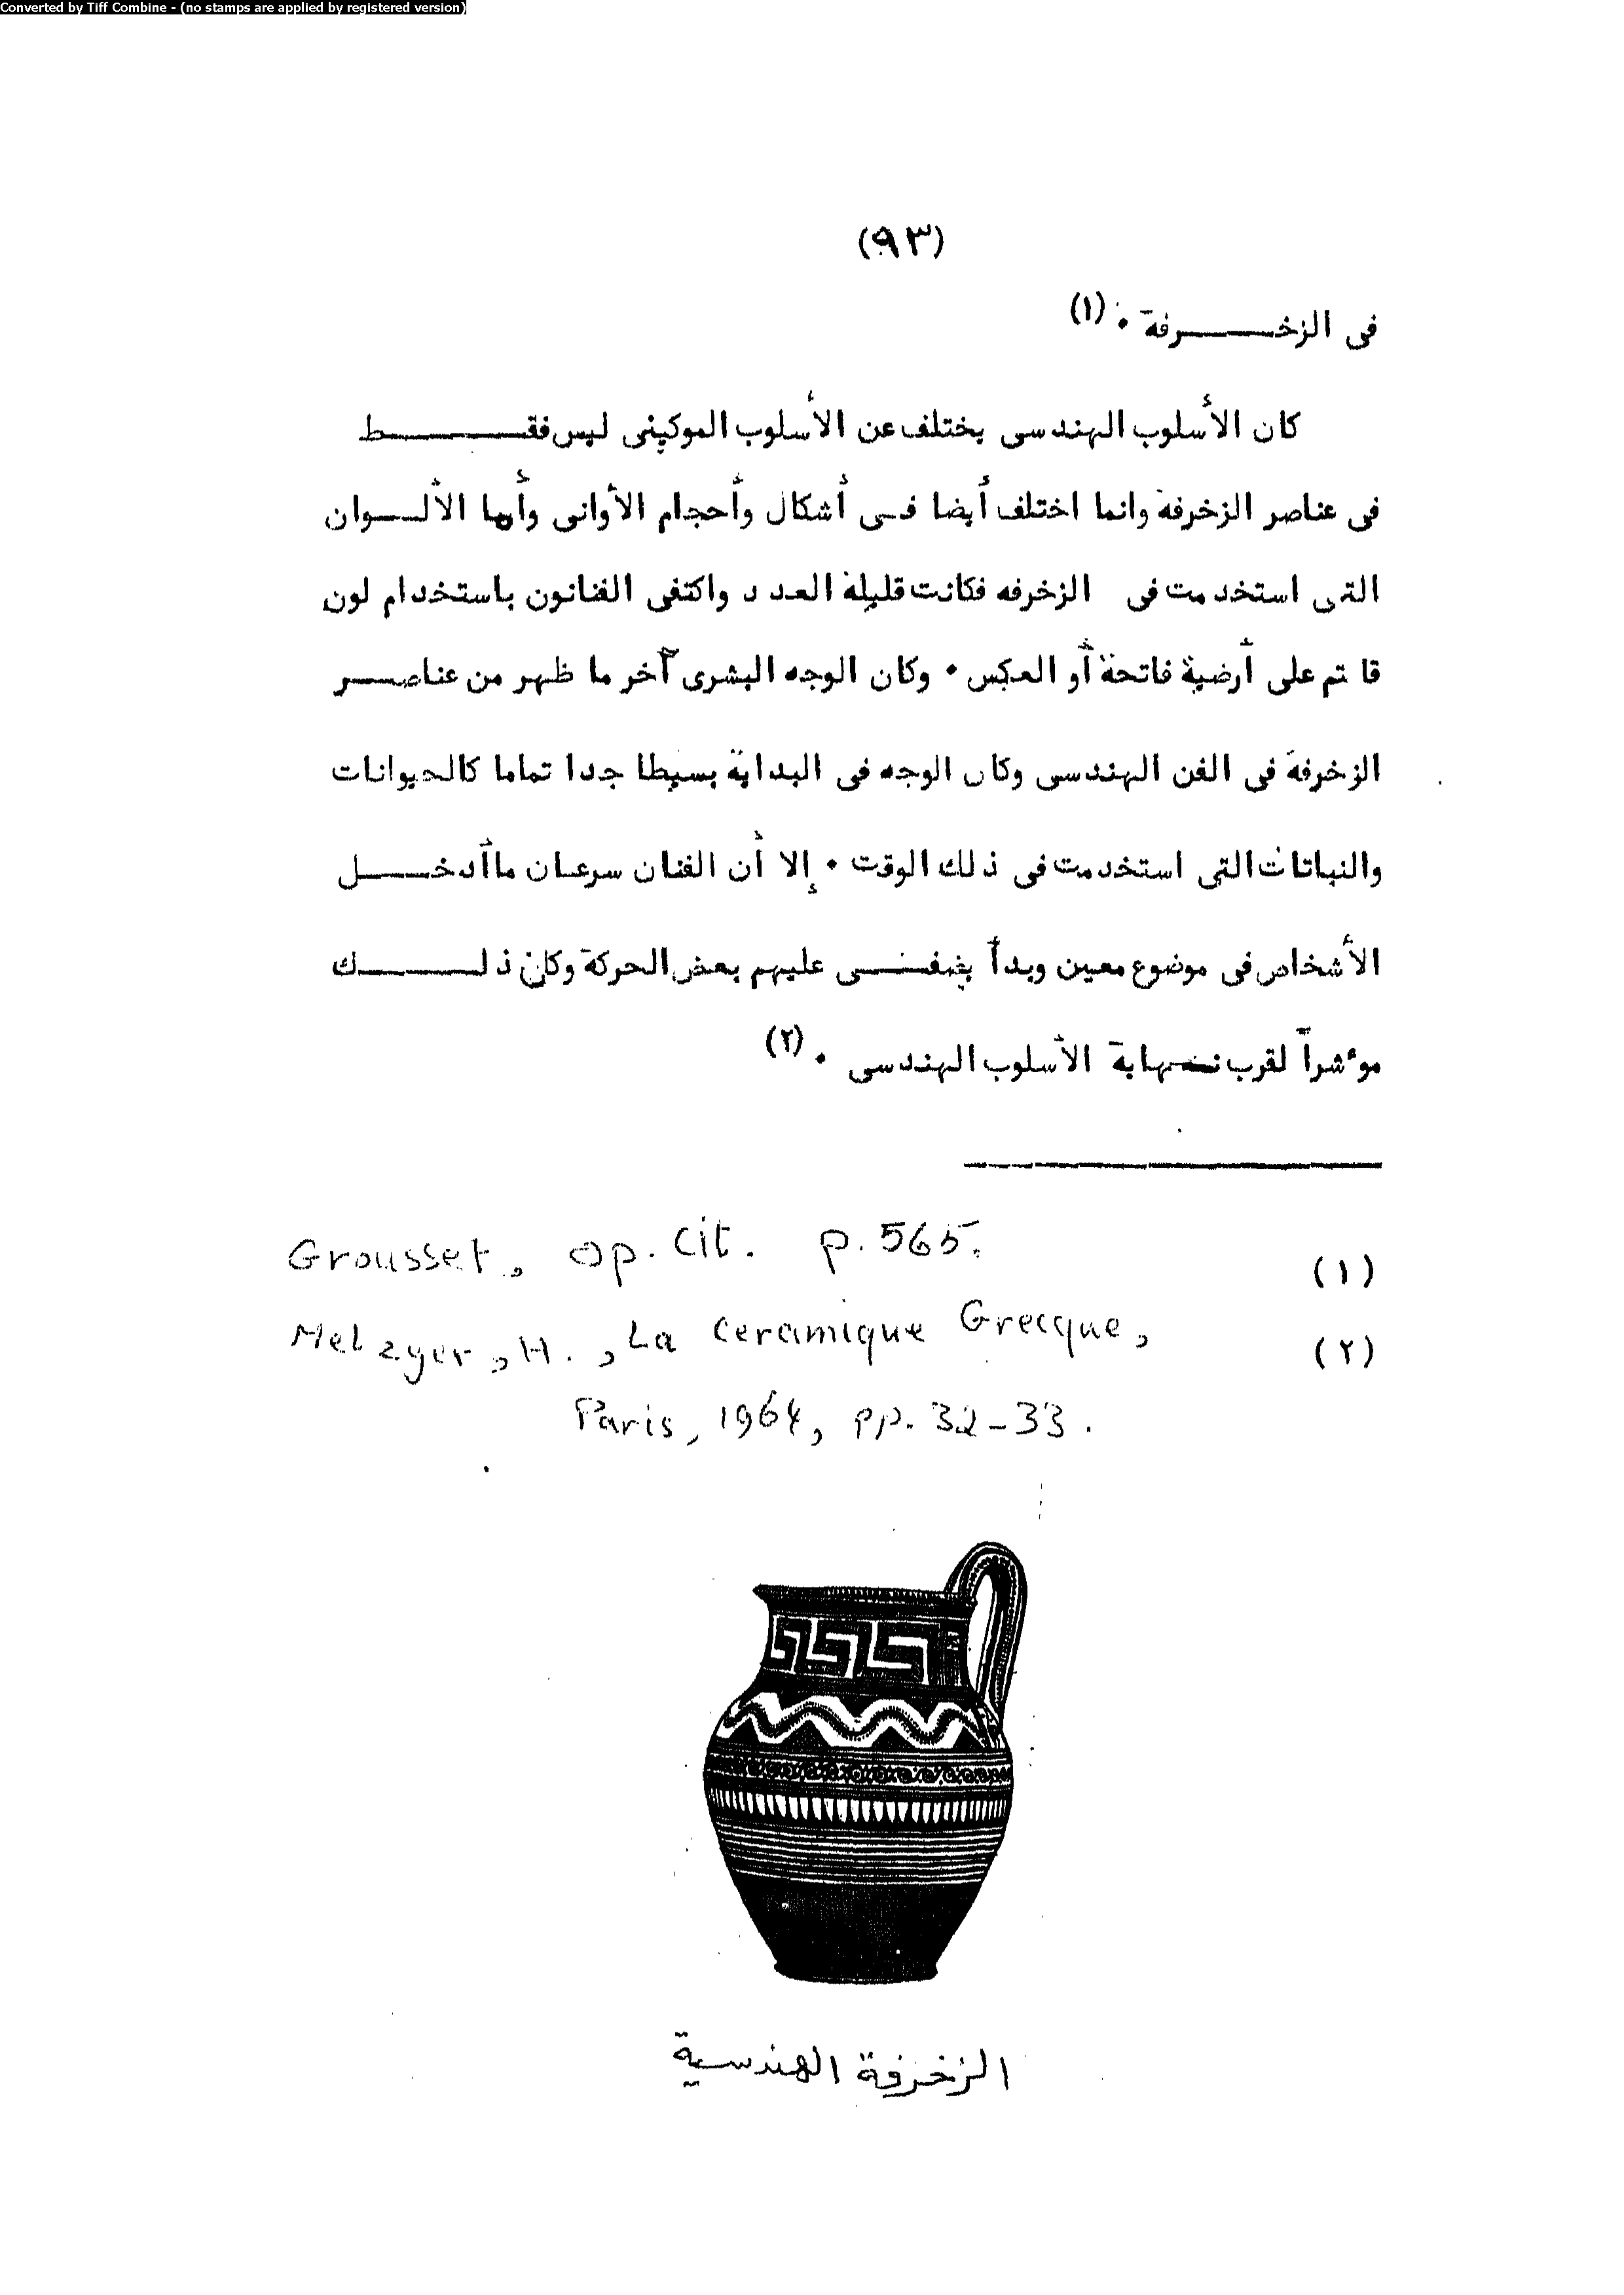 Converted by Tiff Combine - (no stamps are applied by registered version)
(٩٣)
فى الزخـــــرفة . (١)
كان الأسلوب الهندسى يختلف عن الأسلوب الموكينى ليس فقـــــط
فى عناصر الزخرفة وانما اختلف أيضا فـى أشكال وأحجام الأوانى وأما الألــوان
التى استخدمت فى الزخرفه فكانت قليلة العدد واكتفى الفنانون باستخدام لون
قاتم على أرضية فاتحة أو العكس . وكان الوجه البشرى آخر ما ظهر من عناصــر
الزخرفة فى الفن الهندسى وكان الوجه فى البداية بسيطا جدا تماما كالحيوانات
والنباتات التى استخدمت فى ذلك الوقت . إلا أن الفنان سرعان ما أدخــل
الأشخاص فى موضوع معين وبدأ يضفــى عليهم بعض الحركة وكان ذلـــــك
موٴشراً لقرب نـهاية الأسلوب الهندسى . (٢)
(١) Grousset, op. cit. p. 565.
(٢) Metzger, H., La ceramique Grecque,
Paris, 1964, pp. 32-33.
الزخرفة الهندسية